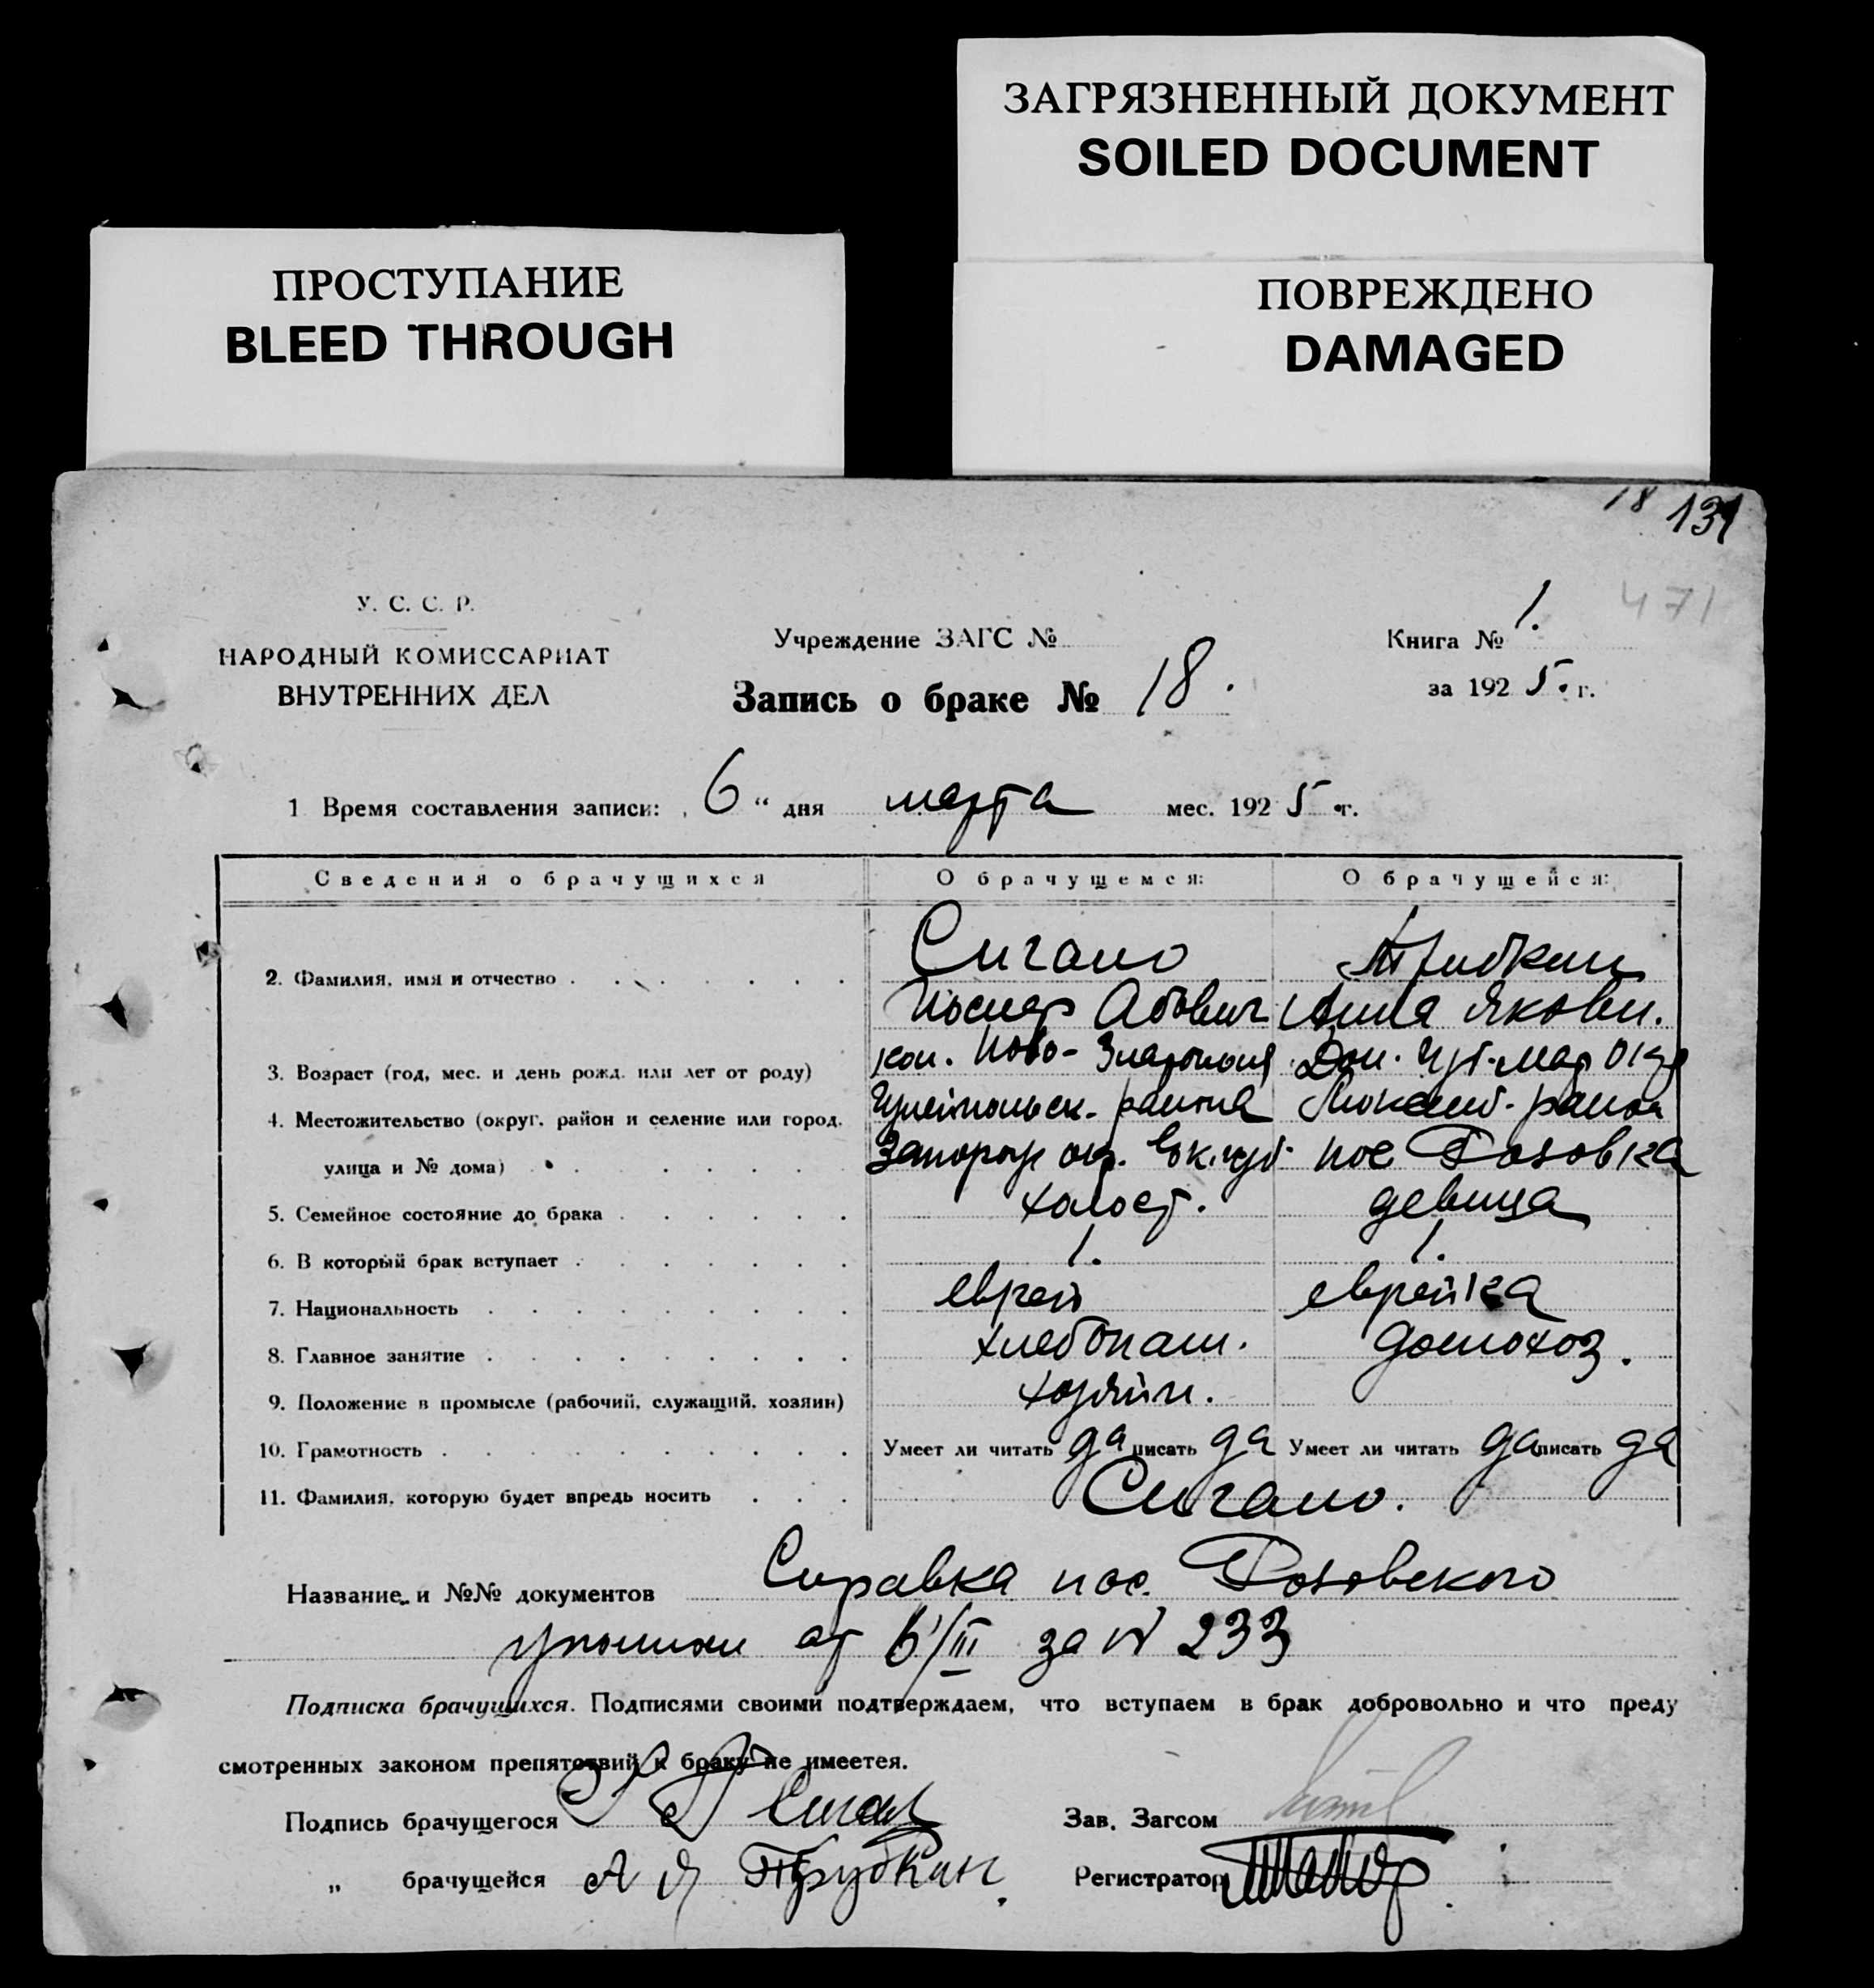 ЗАГРЯЗНЕННЫЙ ДОКУМЕНТ
SOILED DOCUMENT
ПРОСТУПАНИЕ
BLEED THROUGH
ПОВРЕЖДЕНО
DAMAGED
18 131
471
У. С. С. Р.
НАРОДНЫЙ КОМИССАРИАТ
ВНУТРЕННИХ ДЕЛ
Учреждение ЗАГС №
Запись о браке № 18.
Книга № 1.
за 1925. г.
1 Время составления записи: „ 6 “ дня марта мес. 1925 г.
Сведения о брачущихся О брачущемся: О брачущейся:
2. Фамилия, имя и отчество Сигало
Абович Анна Яковл.
3. Возраст (год, мес. и день рожд. или лет от роду) кол. Ново-Златополя Дон. губ. Мар окр
4. Местожительство (округ, район и селение или город, района района
улица и № дома) Запорож окр. Ек. губ. пос Розовка
5. Семейное состояние до брака холост. девица
6. В который брак вступает 1. 1.
7. Национальность еврей еврейка
8. Главное занятие хлебопаш. домохоз.
9. Положение в промысле (рабочий, служащий, хозяин) хозяин.
10. Грамотность Умеет ли читать да писать да Умеет ли читать да писать да
11. Фамилия, которую будет впредь носить Сигало.
Название и №№ документов Справка пос. Розовского
от 6/III за N 233
Подписка брачущихся. Подписями своими подтверждаем, что вступаем в брак добровольно и что преду
смотренных законом препятствий к браку не имеется.
Подпись брачущегося Сигал
Зав. Загсом
„ брачущейся А Я Трубкин
Регистратор